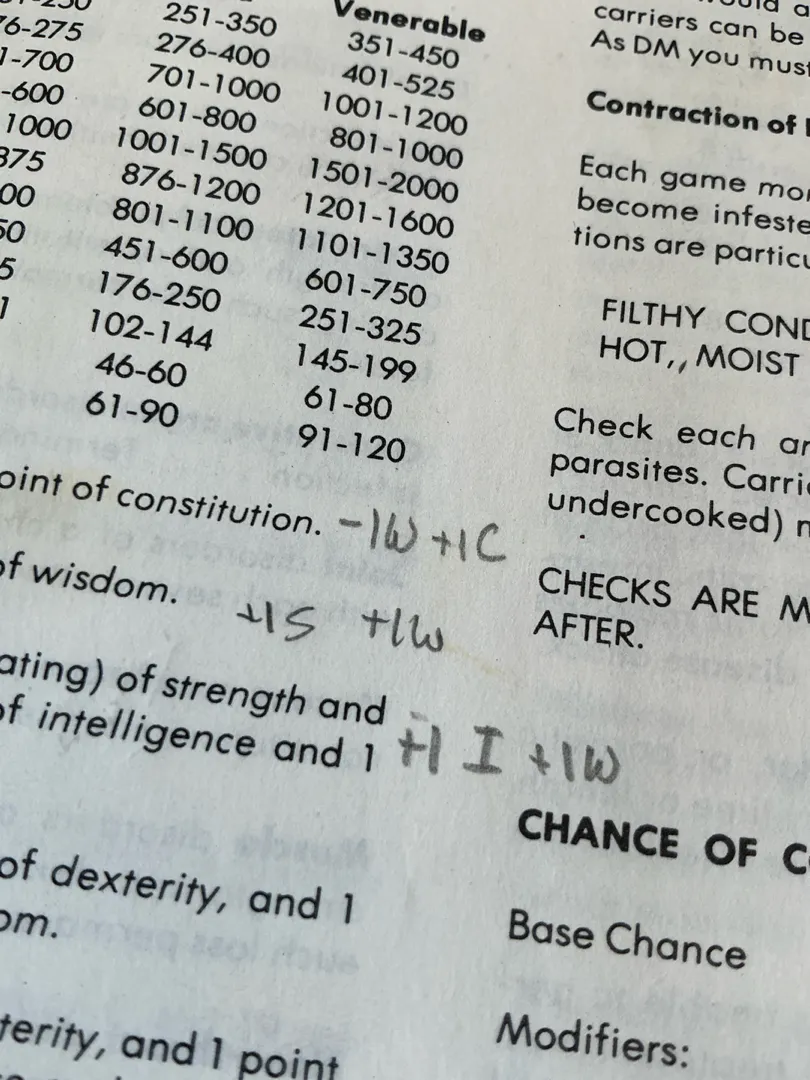 Venerable
76-275 251-350 351-450
-700 276-400 401-525
-600 701-1000 1001-1200
1000 601-800 801-1000
875 1001-1500 1501-2000
00 876-1200 1201-1600
50 801-1100 1101-1350
5 451-600 601-750
1 176-250 251-325
102-144 145-199
46-60 61-80
61-90 91-120
oint of constitution. -1W +1C
of wisdom.
+1S +1W
ating) of strength and
of intelligence and 1 +1 I +1W
of dexterity, and 1
om.
terity, and 1 point
carriers can be
As DM you must
Contraction of
Each game mon
become infeste
tions are particu
FILTHY COND
HOT,, MOIST
Check each ar
parasites. Carri
undercooked) m
CHECKS ARE M
AFTER.
CHANCE OF C
Base Chance
Modifiers: